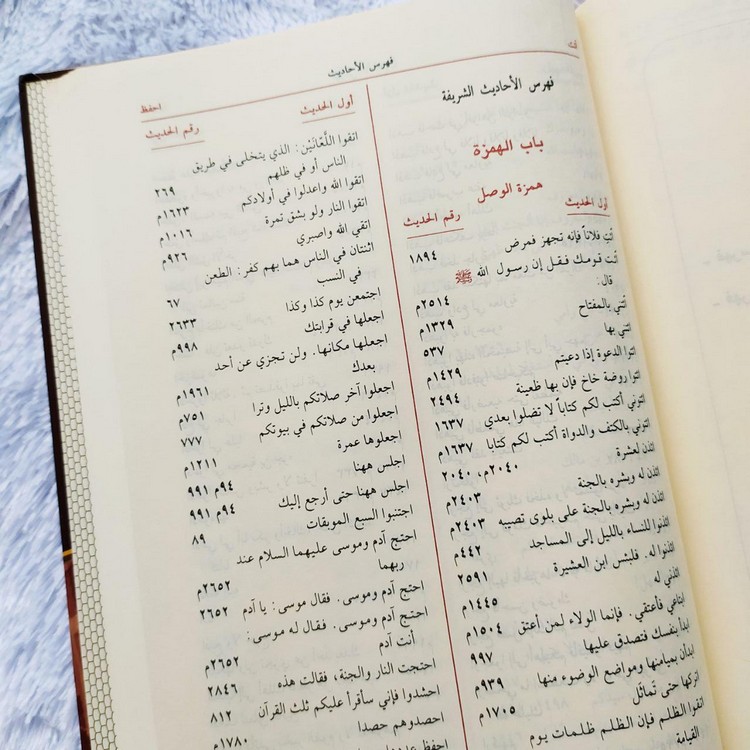 فهرس الأحاديث
فهرس الأحاديث الشريفة
باب الهمزة
همزة الوصل
أول الحديث رقم الحديث
ائت فلاناً فإنه تجهز فمرض ١٨٩٤
ائت قومك فقل إن رسول الله ﷺ
قال: ٢٥١٤م
ائتني بالمفتاح ١٣٢٩م
ائتني بها ٥٣٧
ائتوا الدعوة إذا دعيتم ١٤٢٩م
ائتوا روضة خاخ فإن بها ظعينة ٢٤٩٤
ائتوني أكتب لكم كتاباً لا تضلوا بعدي ١٦٣٧
ائتوني بالكتف والدواة أكتب لكم كتابا ١٦٣٧م
ائذن لعشرة ٢٠٤٠م، ٢٠٤٠
ائذن له وبشره بالجنة ٢٤٠٣م
ائذن له وبشره بالجنة على بلوى تصيبه ٢٤٠٣م
ائذنوا للنساء بالليل إلى المساجد ٤٤٢م
ائذنوا له. فلبئس ابن العشيرة ٢٥٩١
ائذني له ١٤٤٥م
ابتاعي فأعتقي. فإنما الولاء لمن أعتق ١٥٠٤م
ابدأ بنفسك فتصدق عليها ٩٩٧
ابدأن بميامنها ومواضع الوضوء منها ٩٣٩م
اتركها حتى تماثل ١٧٠٥م
اتقوا الظلم فإن الظلم ظلمات يوم
القيامة
احفظ
أول الحديث رقم الحديث
اتقوا اللَّعانَيْن: الذي يتخلى في طريق
الناس أو في ظلهم ٢٦٩
اتقوا الله واعدلوا في أولادكم ١٦٢٣م
اتقوا النار ولو بشق تمرة ١٠١٦م
اتقي الله واصبري ٩٢٦م
اثنتان في الناس هما بهم كفر: الطعن
في النسب ٦٧
اجتمعن يوم كذا وكذا ٢٦٣٣
اجعلها في قرابتك ٩٩٨م
اجعلها مكانها. ولن تجزي عن أحد
بعدك ١٩٦١م
اجعلوا آخر صلاتكم بالليل وترا ٧٥١م
اجعلوا من صلاتكم في بيوتكم ٧٧٧
اجعلوها عمرة ١٢١١م
اجلس ههنا ٩٤م ٩٩١
اجلس ههنا حتى أرجع إليك ٩٤م ٩٩١
اجتنبوا السبع الموبقات ٨٩
احتج آدم وموسى عليهما السلام عند
ربهما ٢٦٥٢م
احتج آدم وموسى. فقال موسى: يا آدم ٢٦٥٢
احتج آدم وموسى. فقال له موسى:
أنت آدم ٢٦٥٢م
احتجت النار والجنة، فقالت هذه ٢٨٤٦
احشدوا فإني سأقرأ عليكم ثلث القرآن ٨١٢
احصدوهم حصدا ١٧٨٠م
احفظ